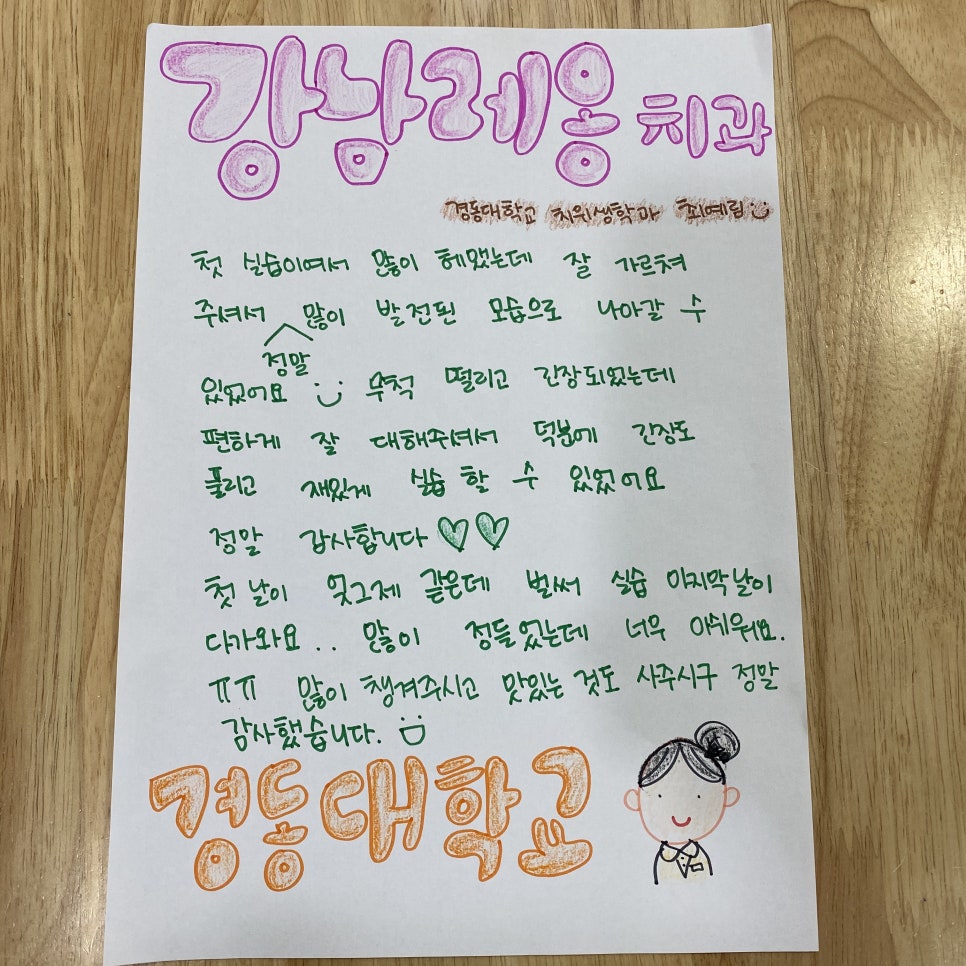 강남레옹 치과
경동대학교 치위생학과 최예림
첫 실습이여서 많이 헤맸는데 잘 가르쳐
주셔서 정말 많이 발전된 모습으로 나아갈 수
있었어요 :) 무척 떨리고 긴장되었는데
편하게 잘 대해주셔서 덕분에 긴장도
풀리고 재밌게 실습 할 수 있었어요
정말 감사합니다♡♡
첫 날이 엊그제 같은데 벌써 실습 마지막날이
다가와요.. 많이 정들었는데 너무 아쉬워요.
ㅠㅠ 많이 챙겨주시고 맛있는 것도 사주시구 정말
감사했습니다. :D
경동대학교